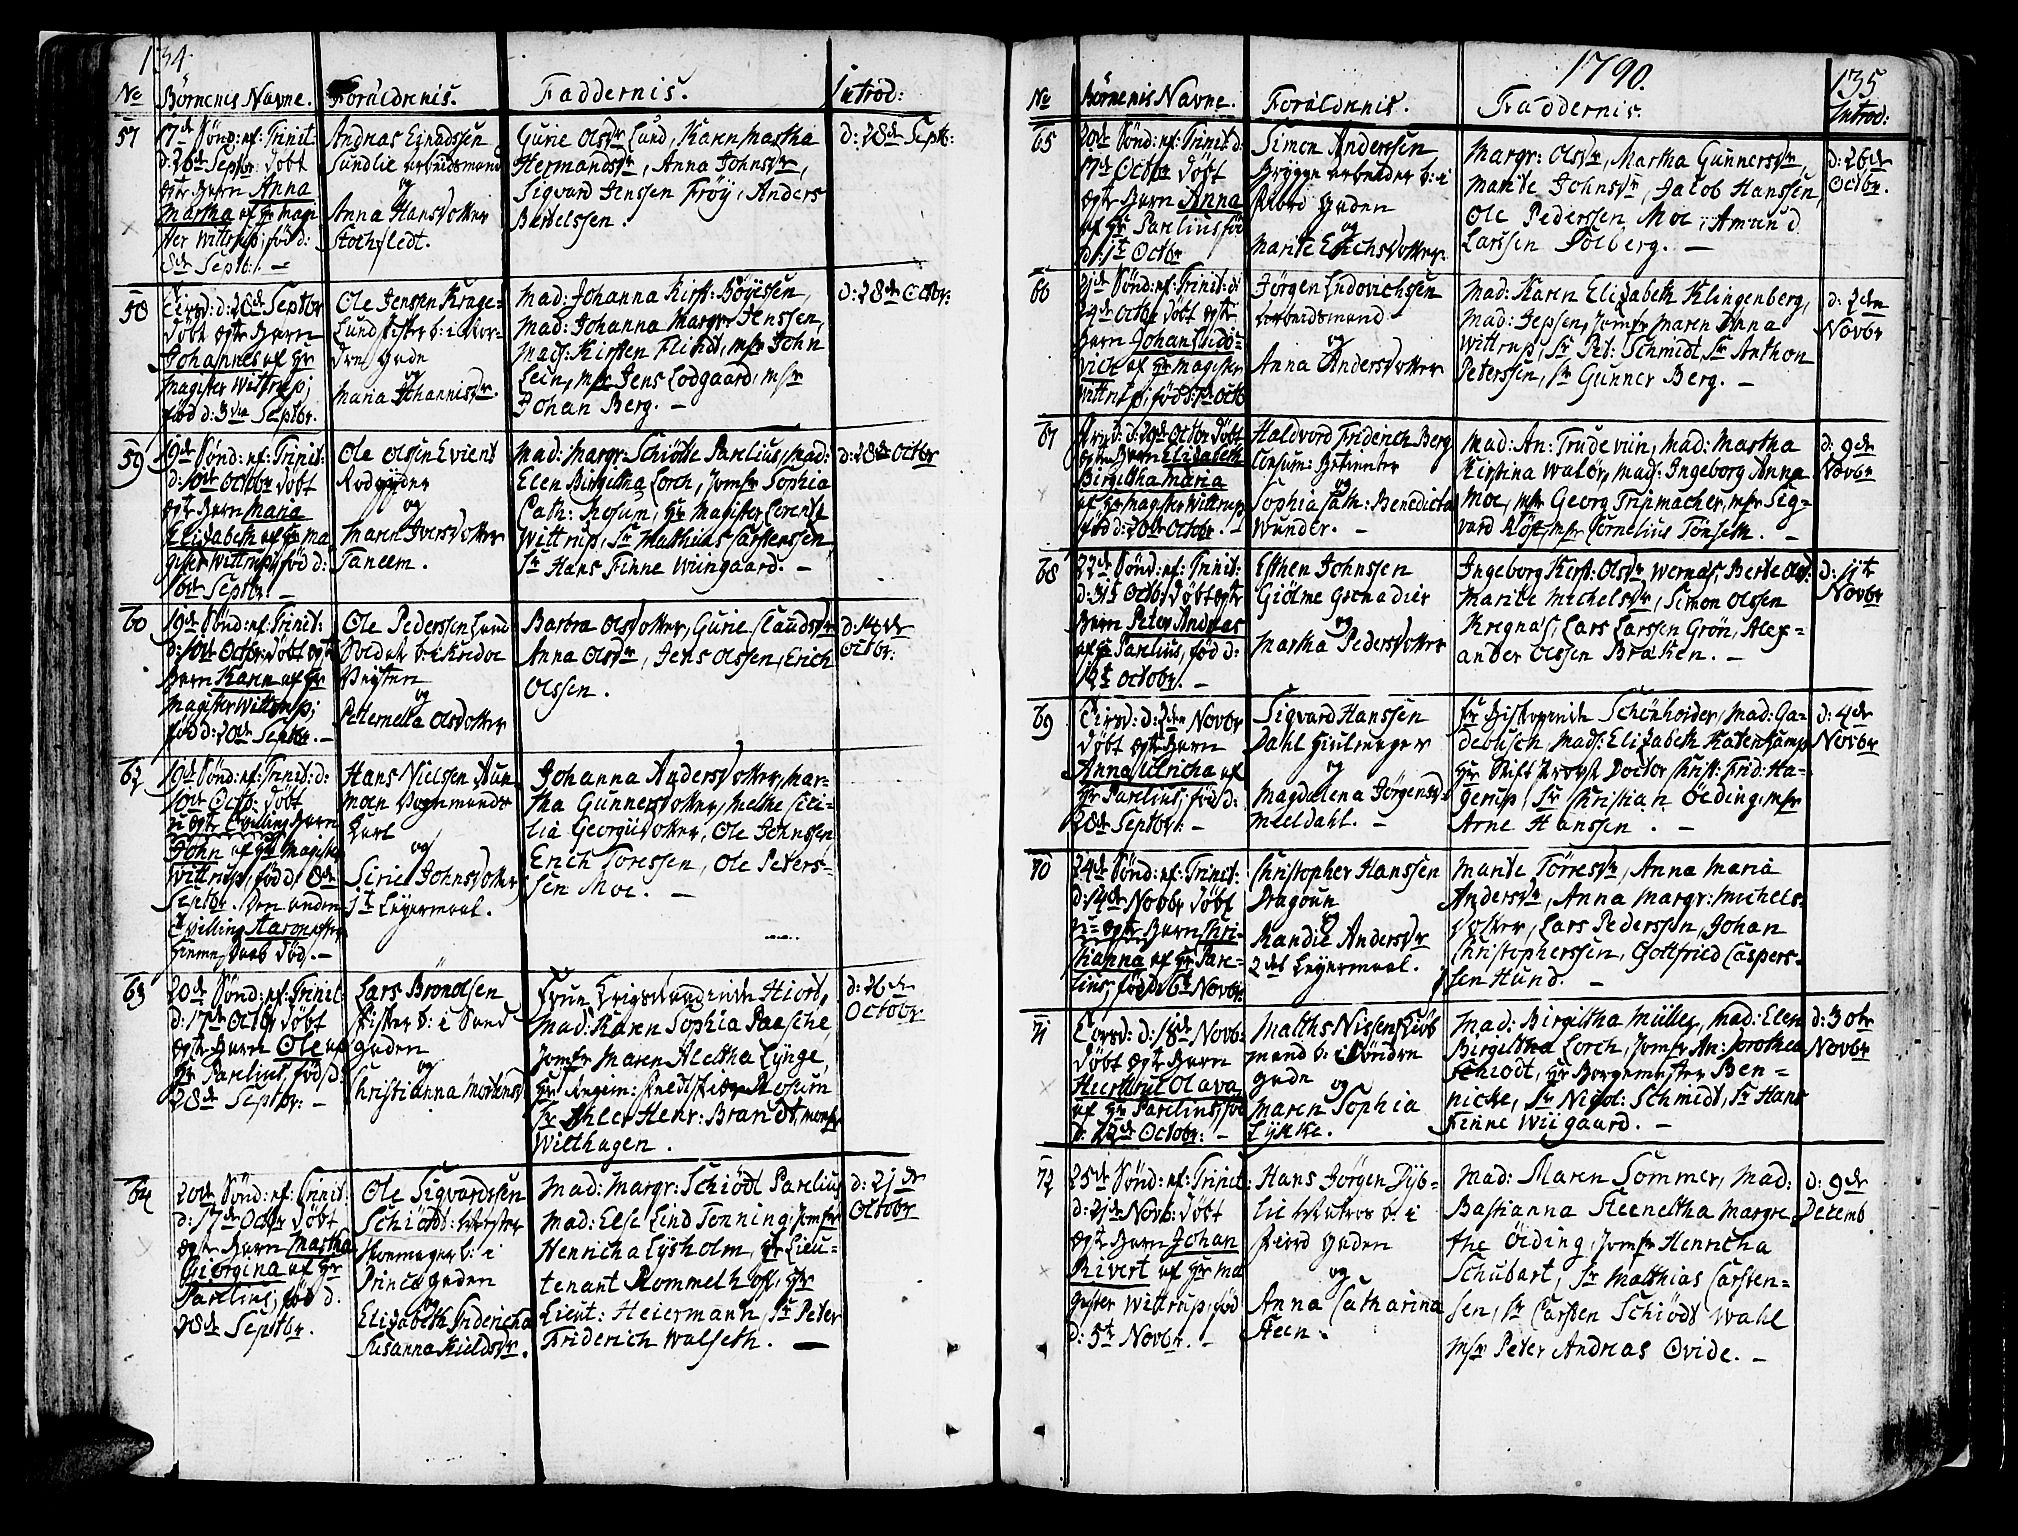 134
No
Børnenis Navne.
Forældrenis.
Faddernis.
Introd:
57
17de Sønd: ef: Trinit:
d: 26de Septbr døbt
ægte Barn Anna
Martha af Hr Magi-
ster Wittrup; fød d:
8de Septb: –
Andreas
Lundlie Arbeidsmand
og
Anna Hansdotter
Stochfledt.
Gurie Olsdr Lund, Karen Martha
Hermandsdr, Anna Johnsdr,
Sigvard Jenssen Frøy, Anders
Bertelssen.
d: 28de Septb:
58
Tirsd: d: 28de Septbr
døbt ægte Barn
Johannes af Hr
Magister Wittrup;
fød d: 3die Septbr.
Ole Jenssen Krage-
Lund Fisker b: i Fior-
den Gade
og
Maria Johannisdr.
Mad: Johanna Kirst: Böyessen,
Mad: Johanna Margr: Jenssen,
Mad: Kirsten Flindt, Msr John
Lein, Msr Jens Lodgaard, Msr
Johan Berg. –
d: 28de Octbr:
59
19de Sønd: ef: Trinit:
d: 10de Octobr døbt
ægte Barn Maria
Elisabeth af Hr Ma-
gister Wittrup; fød d:
16de Septbr. –
Ole Olssen Evient
og
Maren Iversdotter
Taneem.
Mad: Margr: Schiödte Parelius, Mad:
Elen Birgitha Lorch, Jomfr Sophia
Cath: Rosum, Hr Magister Lorentz
Wittrup, Sr Matthias Carstenssen
Sr Hans Finne Wiingaard. –
d: 28de Octbr
60
19de Sønd: ef: Trinit:
d: 10de Octbr: døbt ægte
Barn Karen af Hr
Magister Wittrup;
fød d: 20de Septbr. –
Ole Pederssen
Soldat
og
Petternella Olsdotter
Barbra Olsdotter, Gurie Claudsdr
Anna Olsdr, Jens Olssen, Erich
Olssen.
d: 14de
Octbr:
62
19de Sønd: ef: Trinit: d:
10de Octb: døbt
u ægte Tvilling Barn
John af Hr Magister
Wittrup, fød d: 8de
Septbr. Den anden
Tvilling Aaron efter
Hiemme Daab død. –
Hans Nielssen
moen Vognmands
Karl
og
Sirie Johnsdotter
1te Leyermaal.
Johanna Andersdotter, Mar-
tha Gunnersdotter, Methe Cici-
lia Georgiidotter, Ole Johnssen
Erich Toressen, Ole Peters-
sen Moe. –
63
20de Sønd: ef: Trinit:
d: 17de Octbr døbt
ægte Barn Ole af
Hr Parelius, fød d:
28de Septbr: –
Lars Bröndlsen
Fisker b: i Sand
gaden
og
Christianna Mortensd
Frue Krigsraadinde Hiort,
Mad: Karen Sophia Paasche,
Jomfr Maren Alethea Lynge,
Hr Regim: Feldskiær Rosum
Sr Ahler Henr: Brandt, Monsr
Wilthagen.
d: 26de
Octobr:
64
20de Sønd: ef: Trinit:
d: 17de Octbr døbt
ægte Barn Martha
Georgina af Hr
Parelius; fød d.
28de Septbr.
Ole Sigvardssen
Schiödt: Mester
Skomager b: i
Princegaden
og
Elisabeth Fridericha
Susanna Kieldsdr.
Mad: Margr: Schiödt Parelius
Mad: Else Lind Tonning, Jomfr
Henricha Lysholm, Hr Lieu-
tenant Rommelhoff, Hr
Lieut: Heiermann, Sr Peter
Friderich Walseth. –
d: 21de
Octobr
1790.
135
No
Børnenis Navne.
Forældrenis.
Faddernis.
Introd:
65
20de Sønd: ef: Trinit: d:
17de Octbr døbt
ægte Barn Anna
af Hr Parelius fød
d: 1te Octbr
Simon Anderssen
Brygge arbeider b: i
Fiord Gaden
og
Marite Erichsdotter
Margr: Olsdr, Martha Gunnersdr,
Marite Johnsdr, Jacob Hanssen,
Ole Pederssen Moe, Amund
Larssen Solberg. –
d: 26de
Octbr.
66
21de Sønd: ef: Trinit: d:
24de Octbr døbt ægte
Barn Johan Ludo-
vich af Hr Magister
Wittrup; fød d: 1te Octb
Jørgen Ludovichsen
Arbeidsmand
og
Anna Andersdotter
Mad: Karen Elisabeth Klingenberg,
Mad: Jepsen, Jomfr Maren Anna
Wittrup, Sr Pet: Schmidt, Sr Anthon
Peterssen, Sr Gunner Berg. –
d: 2den
Novbr
67
d: 29de Octbr døbt
ægte Barn Elisabeth
Birgitha Maria
af Hr Magister Wittrup
fød d: 20de Octbr. –
Haldvord Friderich Berg
Consum: Betienter
og
Sophia Cath: Benedicta
Wunder. –
Mad: An: Trude Viin, Mad: Martha
Kirstina Walör, Mad: Ingeborg Anna
Moe, Msr Georg Tripmacher, Msr Sig-
vard Röst, Msr Cornelius Tönseth. –
d: 9de
Novbr
68
22de Sønd: ef: Trinit:
d: 31te Octb: døbt ægte
Barn Peter Andreas
af Hr Parelius, fød d:
12te Octobr. –
Esthen Johnssen
Giölme Grenadier
og
Martha Pedersdotter
Ingeborg Kirst: Olsdr Wernæs, Berte Olsd:
Marite Michelsdr, Simon Olssen
Kregnæs, Lars Larssen Grön, Alex-
ander Olssen Bratten. –
d: 11te
Novbr
69
Tirsd: d: 2den Novbr
døbt ægte Barn
Anna Ulricha af
Hr Parelius; fød d:
28de Septbr: –
Sigvard Hanssen
Dahl Hiulmager
og
Magdalena Jörgensdr
Meeldahl. –
Fr Biskopinde Schönheider, Mad: Ga-
debusch, Mad: Elisabeth Katenkamp
Hr Stift Provst Doctor Christ: Frid: Ha-
gerup, Sr Christian Öelding, Msr
Arne Hanssen. –
d: 4de
Novbr
70
24de Sønd: ef: Trinit:
d: 14de Novbr døbt
u-ægte Barn Chri-
stianna af Hr Pare-
lius; fød d: 6te Novbr.
Christopher Hanssen
Dragoun
og
Randie Andersdr
2det Leyermaal.
Marite Töresdr, Anna Maria
Andersdr, Anna Margr: Michels-
dotter, Lars Pederssen, Johan
Christopherssen, Gottfried Caspers-
sen Hund. –
71
Torsd: d: 18de Novb:
døbt ægte Barn
Hierthrul Olava
af Hr Parelius, fød
d: 22de Octobr: –
Maths Nissen Kiöb
mand b: i Sönden
Gade
og
Maren Sophia
Lykke.
Mad: Birgitha Müller, Mad: Elen
Birgitha Lorch, Jomfr An: Dorothea
Schiödt, Hr Borgemester Ben-
nicke, Sr Nicol: Schmidt, Sr Hans
Finne Wiigaard. –
d: 30te
Novbr
72
25de Sønd: ef: Trinit:
d: 21de Novb: døbt
ægte Barn Johan
Rivert af Hr Ma
gister Wittrup; fød
d: 5te Novbr. –
Hans Jörgen Dyb-
lie Matros b: i
Fiord Gaden
og
Anna Catharina
Steen.
Mad: Maren Sommer, Mad:
Bastianna Steneltha Margre-
the Öiding, Jomfr Henricha
Schubart, Sr Matthias Carsten-
sen, Sr Carsten Schiödt Wahl
Msr Peter Andreas Qvide. –
d: 9de
Decemb